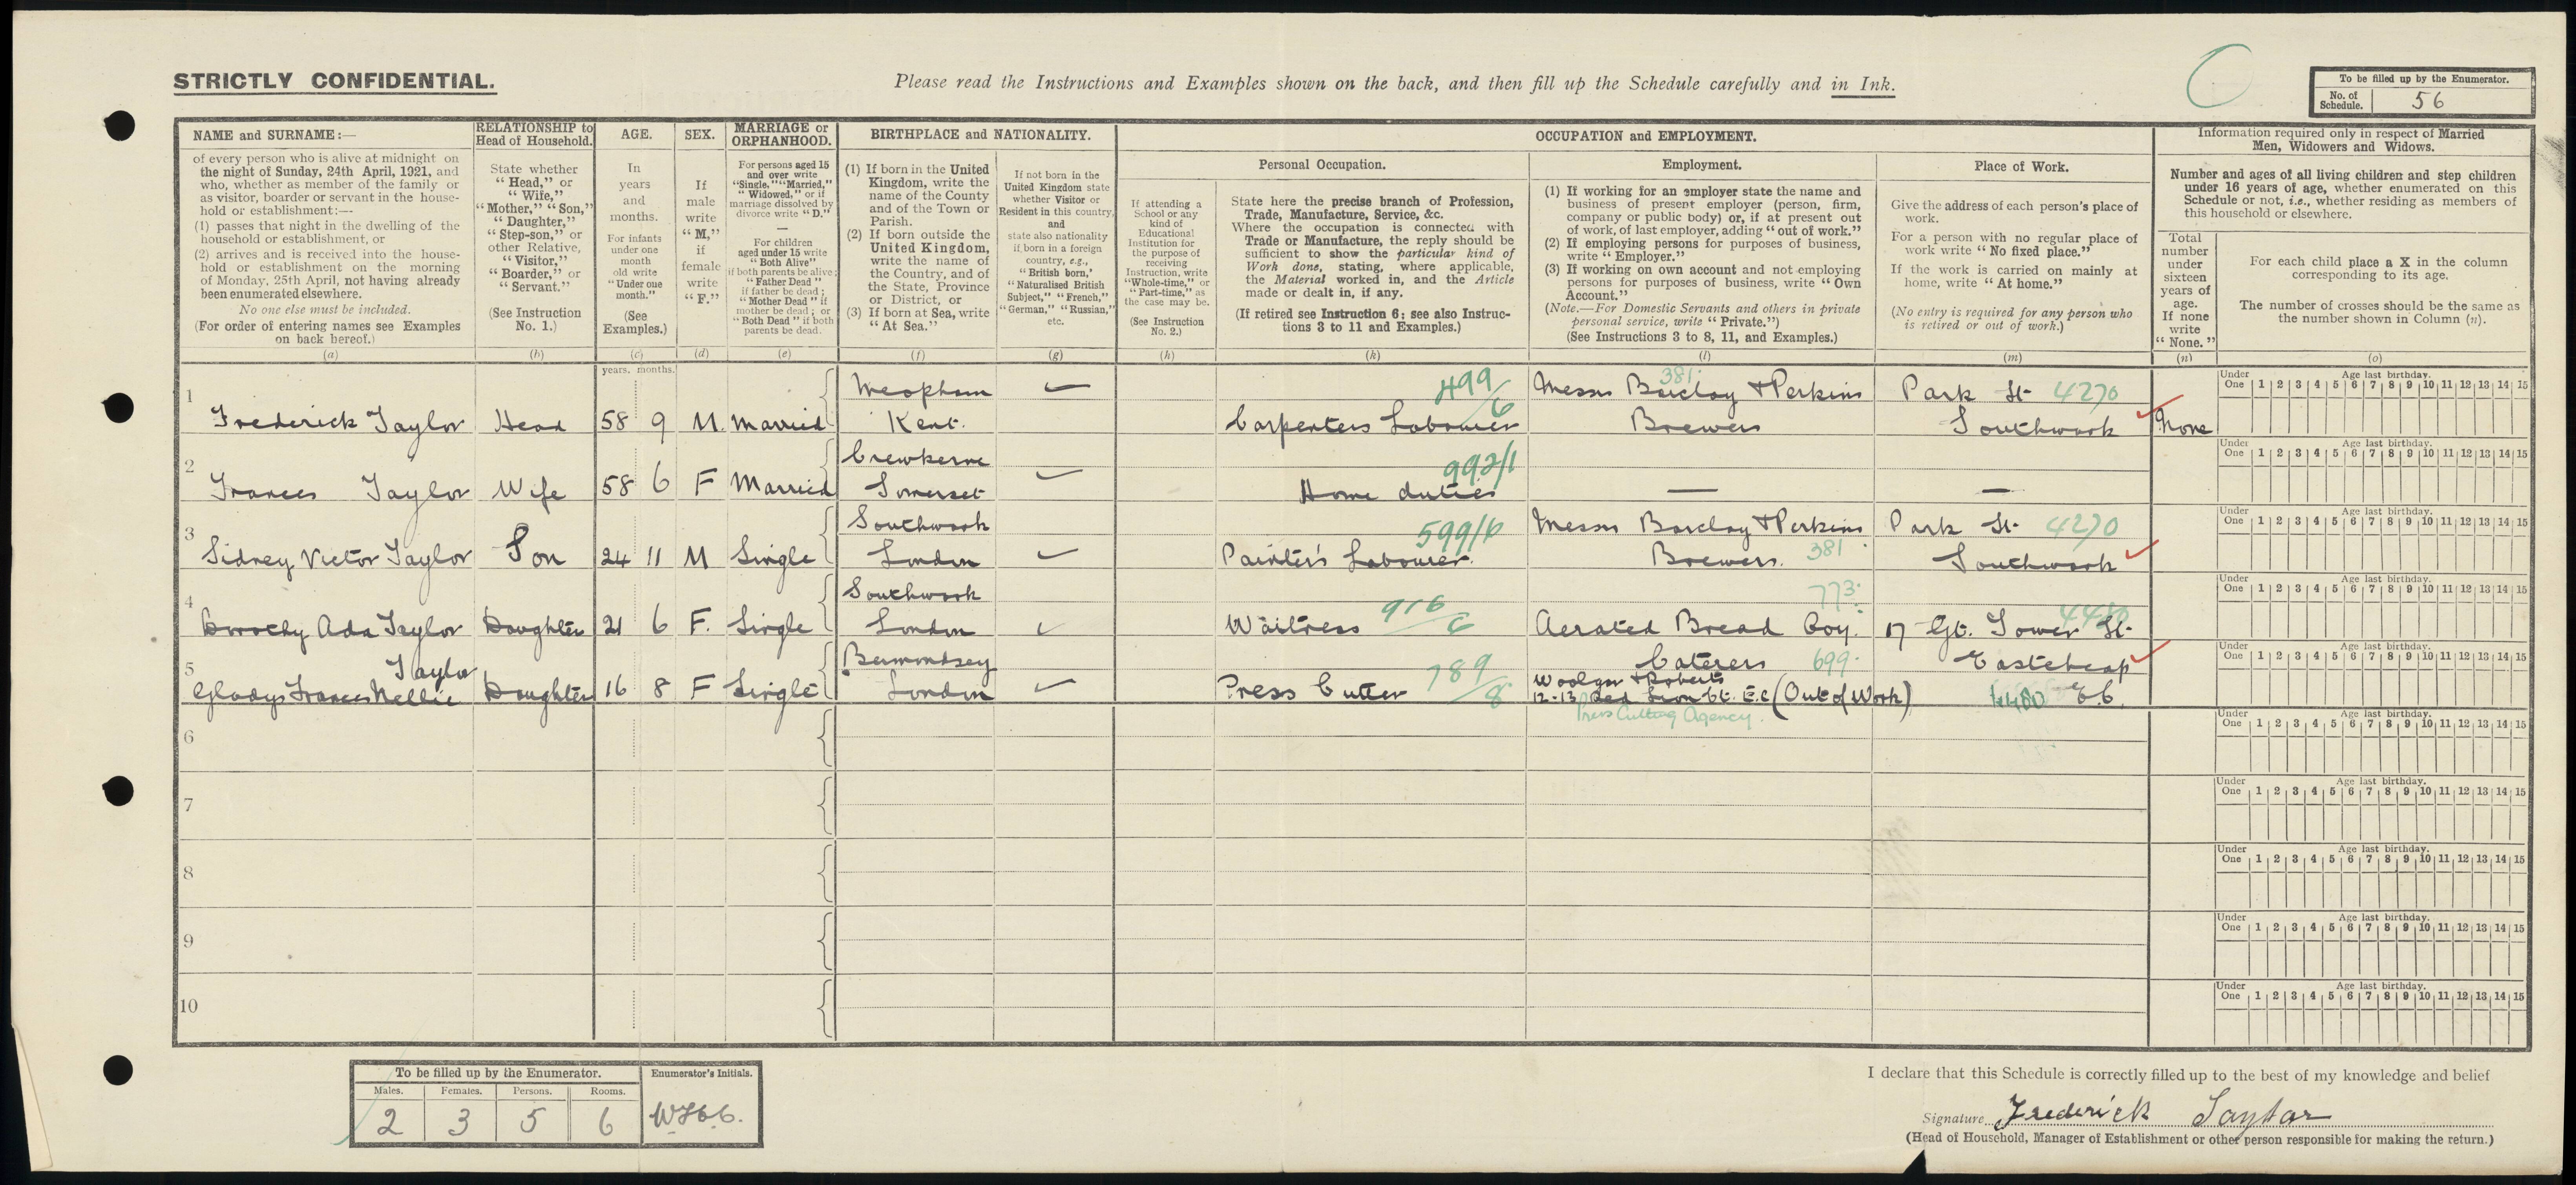 STRICTLY CONFIDENTIAL.
Please read the Instructions and Examples shown on the back, and then fill up the Schedule carefully and in Ink.
To be filled up by the Enumerator.
No. of Schedule. 56
NAME and SURNAME:—
of every person who is alive at midnight on
the night of Sunday, 24th April, 1921, and
who, whether as member of the family or
as visitor, boarder or servant in the house-
hold or establishment:—
(1) passes that night in the dwelling of the
household or establishment, or
(2) arrives and is received into the house-
hold or establishment on the morning
of Monday, 25th April, not having already
been enumerated elsewhere.
No one else must be included.
(For order of entering names see Examples
on back hereof.)
(a)
RELATIONSHIP to
Head of Household.
State whether
"Head," or
"Wife,"
"Mother," "Son,"
"Daughter,"
"Step-son," or
other Relative,
"Visitor,"
"Boarder," or
"Servant."
(See Instruction
No. 1.)
(b)
AGE.
In
years
and
months.
For infants
under one
month
old write
"Under one
month."
(See
Examples.)
(c)
SEX.
If
male
write
"M,"
if
female
write
"F."
(d)
MARRIAGE or
ORPHANHOOD.
For persons aged 15
and over write
"Single," "Married,"
"Widowed," or if
marriage dissolved by
divorce write "D."
—
For children
aged under 15 write
"Both Alive"
if both parents be alive;
"Father Dead"
if father be dead;
"Mother Dead" if
mother be dead; or
"Both Dead" if both
parents be dead.
(e)
BIRTHPLACE and NATIONALITY.
(1) If born in the United
Kingdom, write the
name of the County
and of the Town or
Parish.
(2) If born outside the
United Kingdom,
write the name of
the Country, and of
the State, Province
or District, or
(3) If born at Sea, write
"At Sea."
(f)
If not born in the
United Kingdom state
whether Visitor or
Resident in this country,
and
state also nationality
if born in a foreign
country, e.g.,
"British born,"
"Naturalised British
Subject," "French,"
"German," "Russian,"
etc.
(g)
OCCUPATION and EMPLOYMENT.
If attending a
School or any
kind of
Educational
Institution for
the purpose of
receiving
Instruction, write
"Whole-time," or
"Part-time," as
the case may be.
(See Instruction
No. 2.)
(h)
Personal Occupation.
State here the precise branch of Profession,
Trade, Manufacture, Service, &c.
Where the occupation is connected with
Trade or Manufacture, the reply should be
sufficient to show the particular kind of
Work done, stating, where applicable,
the Material worked in, and the Article
made or dealt in, if any.
(If retired see Instruction 6; see also Instruc-
tions 3 to 11 and Examples.)
(k)
Employment.
(1) If working for an employer state the name and
business of present employer (person, firm,
company or public body) or, if at present out
of work, of last employer, adding "out of work."
(2) If employing persons for purposes of business,
write "Employer."
(3) If working on own account and not employing
persons for purposes of business, write "Own
Account."
(Note.—For Domestic Servants and others in private
personal service, write "Private.")
(See Instructions 3 to 8, 11, and Examples.)
(l)
Place of Work.
Give the address of each person's place of
work.
For a person with no regular place of
work write "No fixed place."
If the work is carried on mainly at
home, write "At home."
(No entry is required for any person who
is retired or out of work.)
(m)
Information required only in respect of Married
Men, Widowers and Widows.
Number and ages of all living children and step children
under 16 years of age, whether enumerated on this
Schedule or not, i.e., whether residing as members of
this household or elsewhere.
Total
number
under
sixteen
years of
age.
If none
write
"None."
(n)
For each child place a X in the column
corresponding to its age.
The number of crosses should be the same as
the number shown in Column (n).
(o)
years. months.
1 Meopham 499/6 Messrs Barclay & Perkins 381 Park St 4270
Frederick Taylor Head 58 9 M. Married Kent. Carpenters Labourer Brewers Southwark None
Under One 1 2 3 4 5 6 7 8 9 10 11 12 13 14 15
Age last birthday.
2 Crewkerne 992/1
Frances Taylor Wife 58 6 F Married Somerset Home duties — —
Under One 1 2 3 4 5 6 7 8 9 10 11 12 13 14 15
Age last birthday.
3 Southwark 599/6 Messrs Barclay & Perkins Park St 4270
Sidney Victor Taylor Son 24 11 M Single London Painter's Labourer. Brewers. 381 Southwark
Under One 1 2 3 4 5 6 7 8 9 10 11 12 13 14 15
Age last birthday.
4 Southwark 916/6 773 4480
Dorothy Ada Taylor Daughter 21 6 F. Single London Waitress Aerated Bread Coy. 17 Gt. Tower St
Under One 1 2 3 4 5 6 7 8 9 10 11 12 13 14 15
Age last birthday.
5 Taylor Bermondsey 789/8 Caterers 699 Eastcheap
Gladys Frances Nellie Daughter 16 8 F Single London Press Cutter
12-13 Red Lion Ct. E.C (Out of Work) 4480 E.C.
Press Cutting Agency.
Under One 1 2 3 4 5 6 7 8 9 10 11 12 13 14 15
Age last birthday.
6
Under One 1 2 3 4 5 6 7 8 9 10 11 12 13 14 15
Age last birthday.
7
Under One 1 2 3 4 5 6 7 8 9 10 11 12 13 14 15
Age last birthday.
8
Under One 1 2 3 4 5 6 7 8 9 10 11 12 13 14 15
Age last birthday.
9
Under One 1 2 3 4 5 6 7 8 9 10 11 12 13 14 15
Age last birthday.
10
Under One 1 2 3 4 5 6 7 8 9 10 11 12 13 14 15
Age last birthday.
To be filled up by the Enumerator.
Males. Females. Persons. Rooms.
2 3 5 6
Enumerator's Initials.
I declare that this Schedule is correctly filled up to the best of my knowledge and belief
Signature Frederick Taylor
(Head of Household, Manager of Establishment or other person responsible for making the return.)